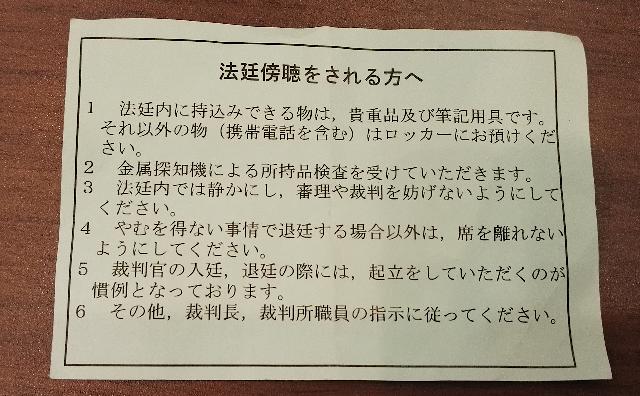 法廷傍聴をされる方へ
1 法廷内に持込みできる物は，貴重品及び筆記用具です。
それ以外の物（携帯電話を含む）はロッカーにお預けくだ
さい。
2 金属探知機による所持品検査を受けていただきます。
3 法廷内では静かにし，審理や裁判を妨げないようにして
ください。
4 やむを得ない事情で退廷する場合以外は，席を離れない
ようにしてください。
5 裁判官の入廷，退廷の際には，起立をしていただくのが
慣例となっております。
6 その他，裁判長，裁判所職員の指示に従ってください。